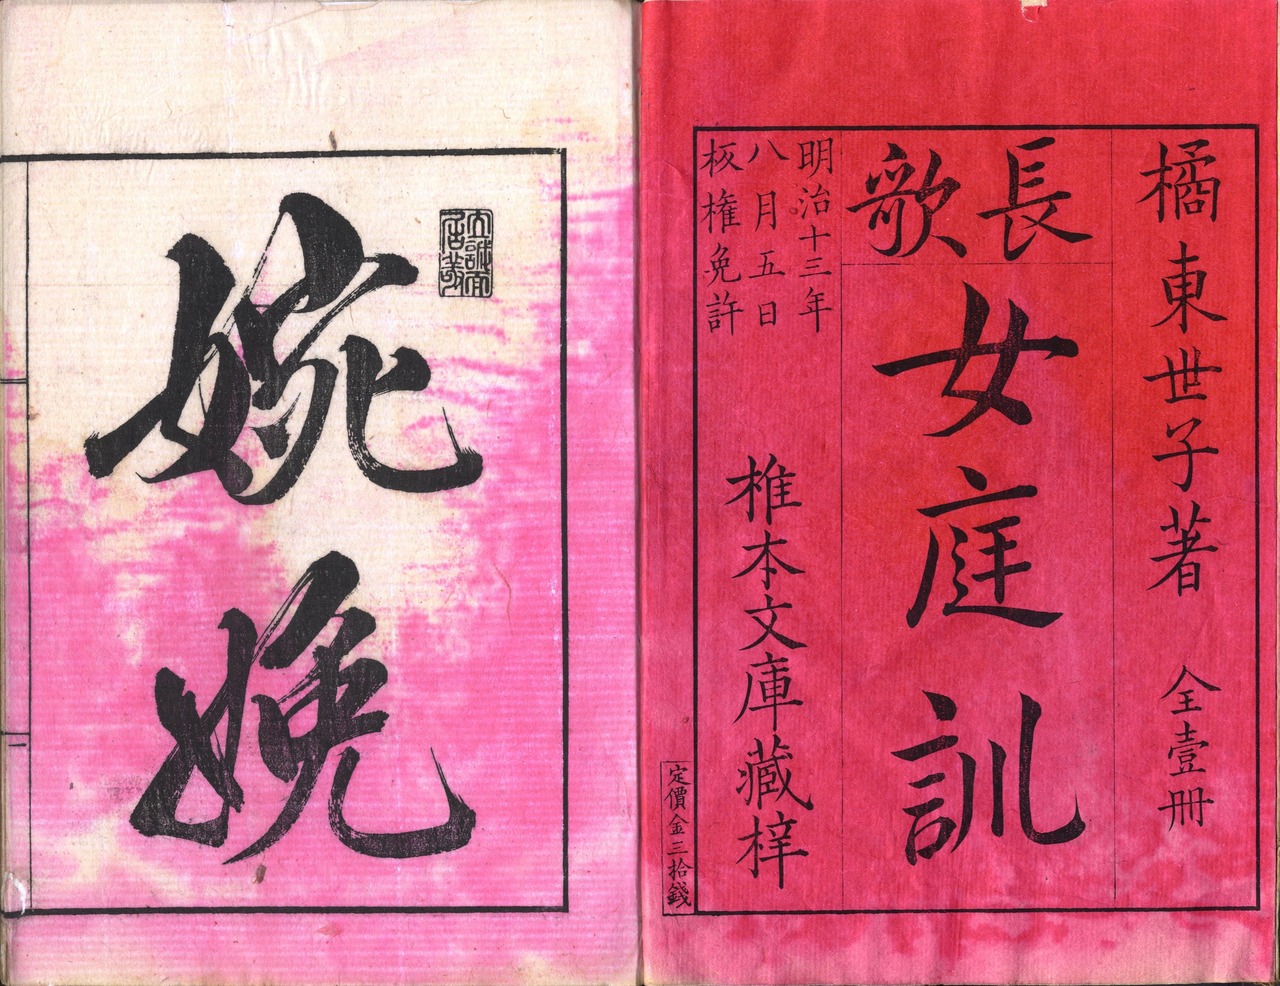 橘東世子著 全壹冊
長歌
女庭訓
明治十三年
八月五日
板権免許
椎本文庫藏梓
定價金三拾錢
婉娩